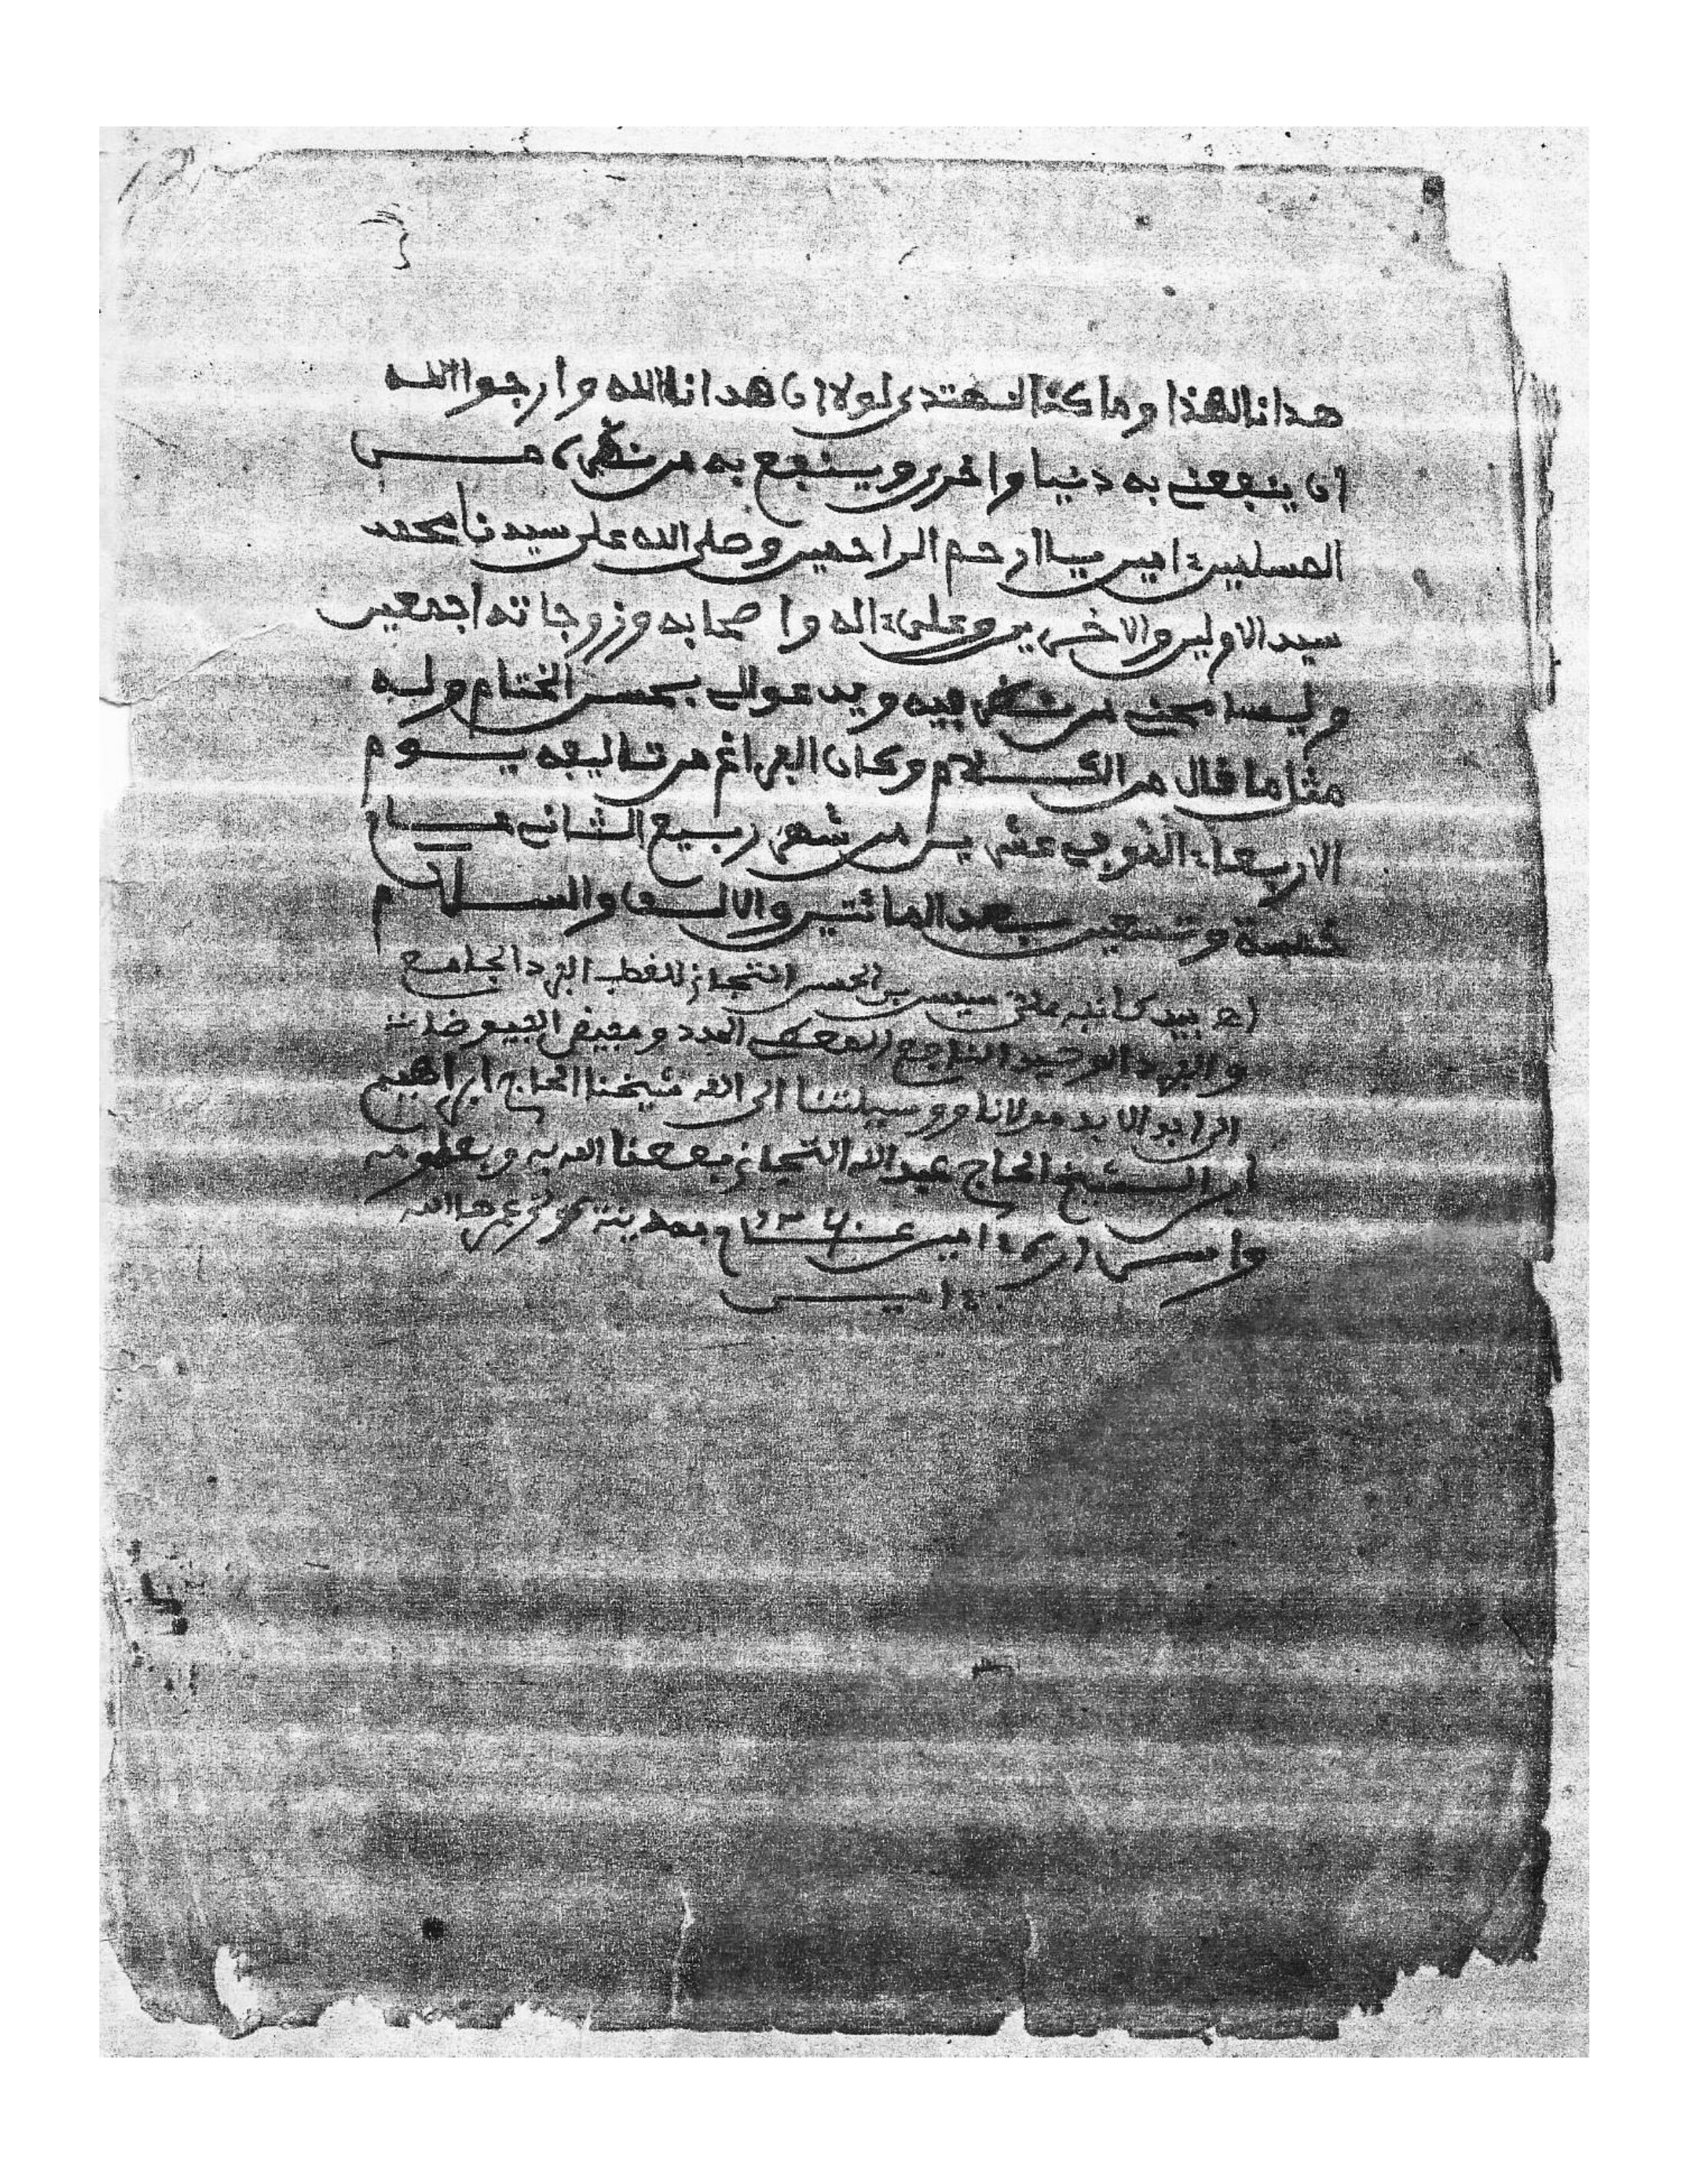 هدانا لهذا وما كنا لنهتدى لولا ان هدانا الله وارجوا الله
ان ينفعنى به دنيا واخرى وينفع به من نظره من
المسلمين ءامين يا ارحم الراحمين وصلى الله على سيدنا محمد
سيد الاولين والاخرين وعلى ءاله واصحابه وزوجاته اجمعين
وليسامحنى من نظر فيه ويدعوالى بحسن الختام وله
مثل ما قال من الكلام وكان الفراغ من تاليفه يوم
الاربعاء الذى عشرين من شهر ربيع الثانى عام
خمسة وتسعين بعد المائتين والالف والسلام
اه بيد كاتبه بن الحسن التجانى للقطب الفرد الجامع
والفرد الوحيد المدد ومفيض الفيوضات
مولانا ووسيلتنا الى الله شيخنا الحاج ابراهيم
ابن الشيخ الحاج عبد الله التجانى نفعنا الله به وبعلومه
ءامين عام بمدينة
ءامين